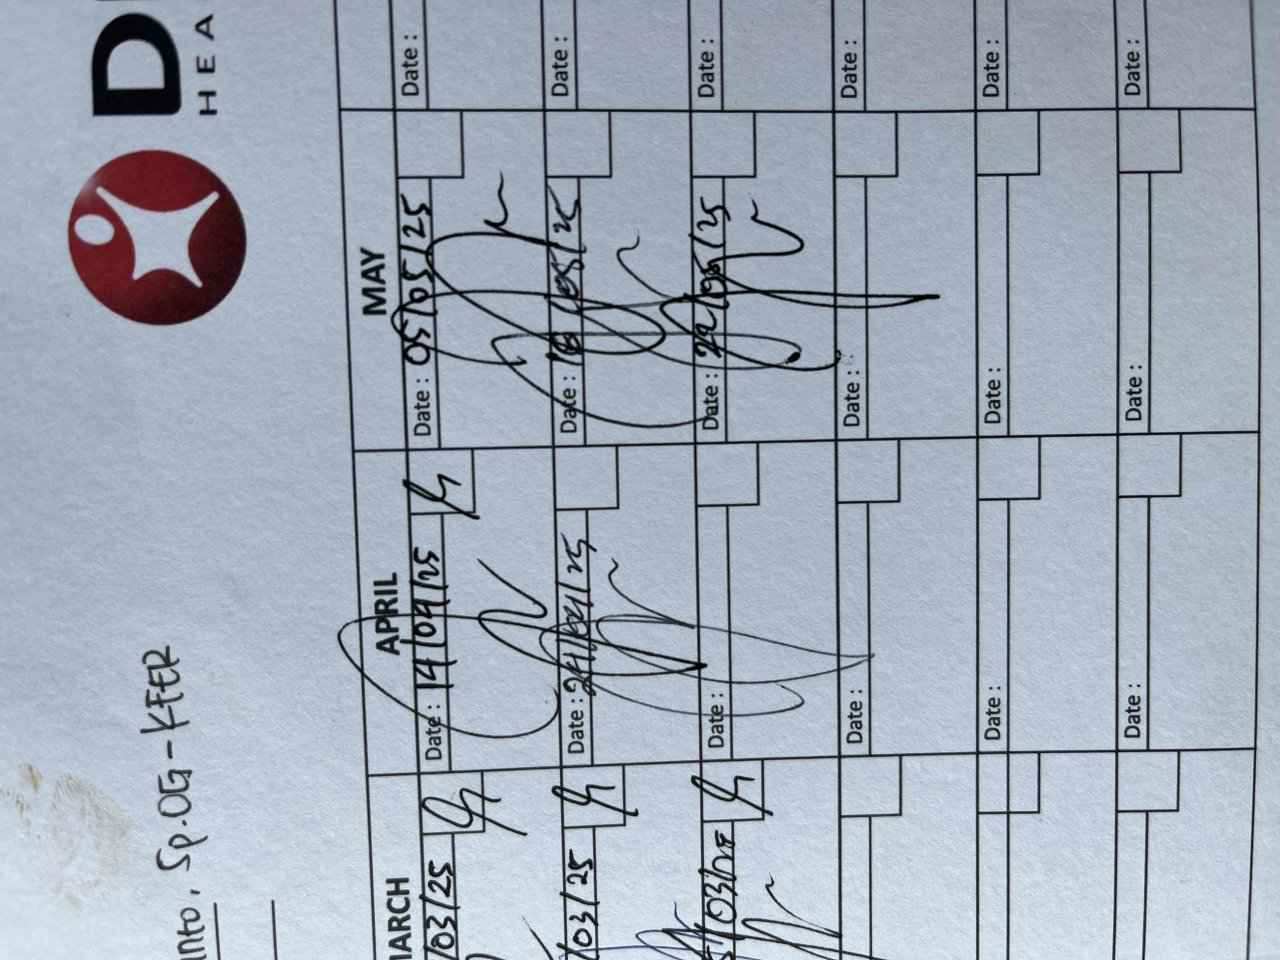 D
HEA
anto. Sp.OG-KFER
MARCH APRIL MAY
/03/25 Date : 14/04/25 Date : 05/05/25 Date :
/03/25 Date : 24/04/25 Date : /05/25 Date :
Date : Date : Date :
Date : Date : Date :
Date : Date : Date :
Date : Date : Date :